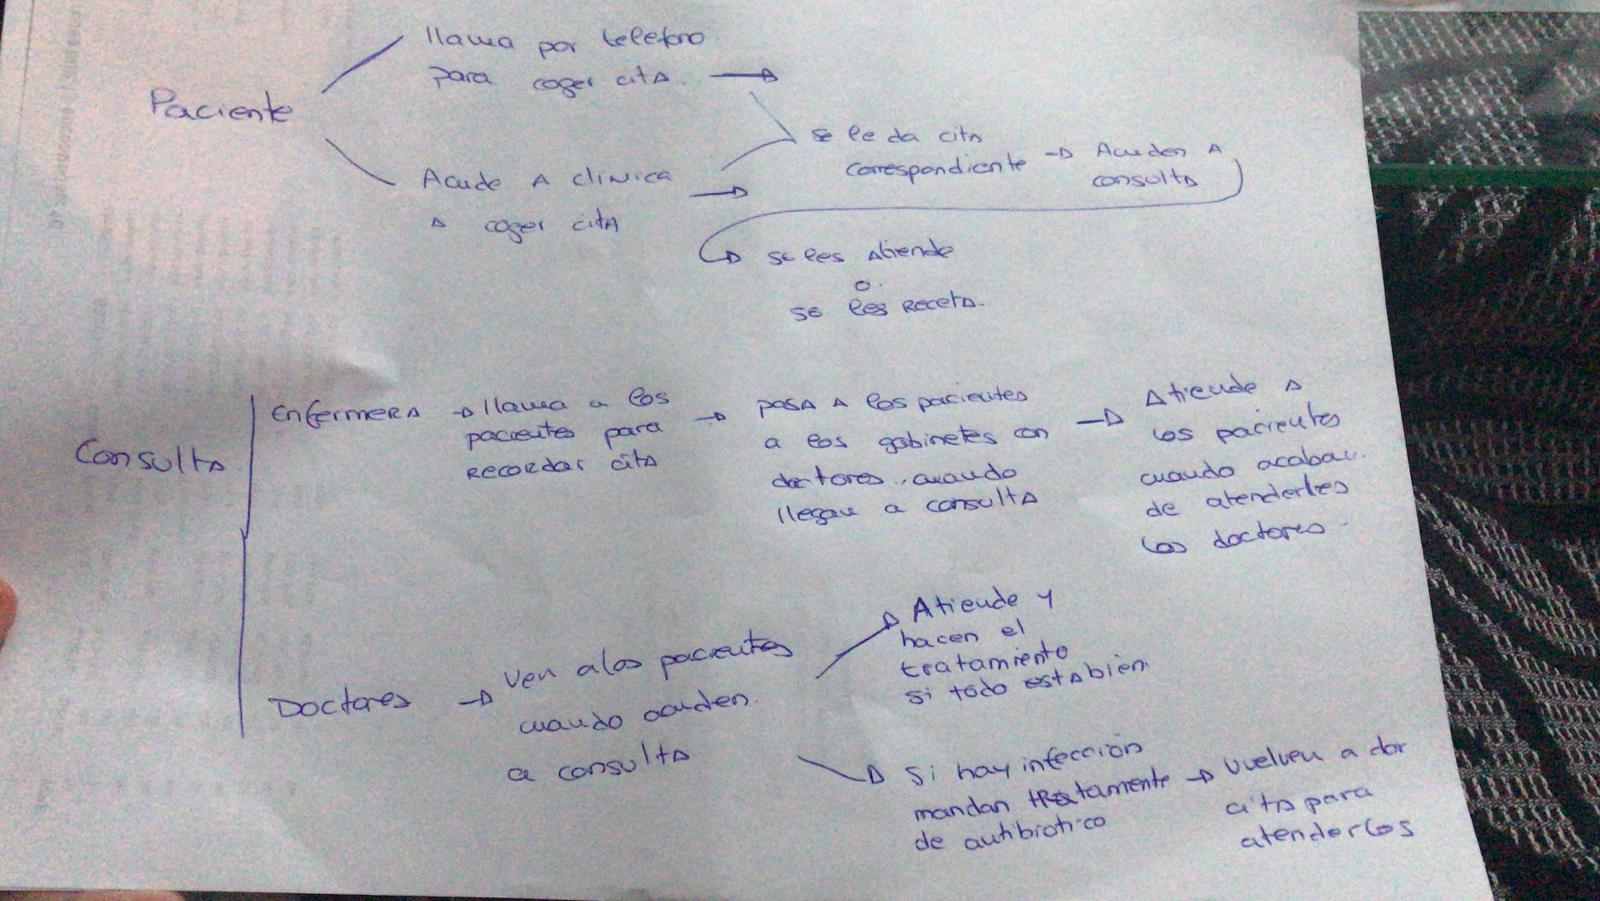 Paciente
llama por telefono
para coger cita
Acude A clinica
A coger cita
se le da cita
correspondiente
Acuden A
consulta
se les atiende
o
se les Receta.
Consulta
Enfermera
llama a los
pacientes para
recordar cita
pasa A los pacientes
a los gabinetes con
doctores, cuando
llegan a consulta
Atiende A
los pacientes
cuando acaban
de atenderles
los doctores
Doctores
ven a los pacientes
cuando acuden
a consulta
Atiende y
hacen el
tratamiento
si todo esta bien.
Si hay infección
mandan tratamiente
de autibiotico
vuelven a dar
cita para
atenderlos